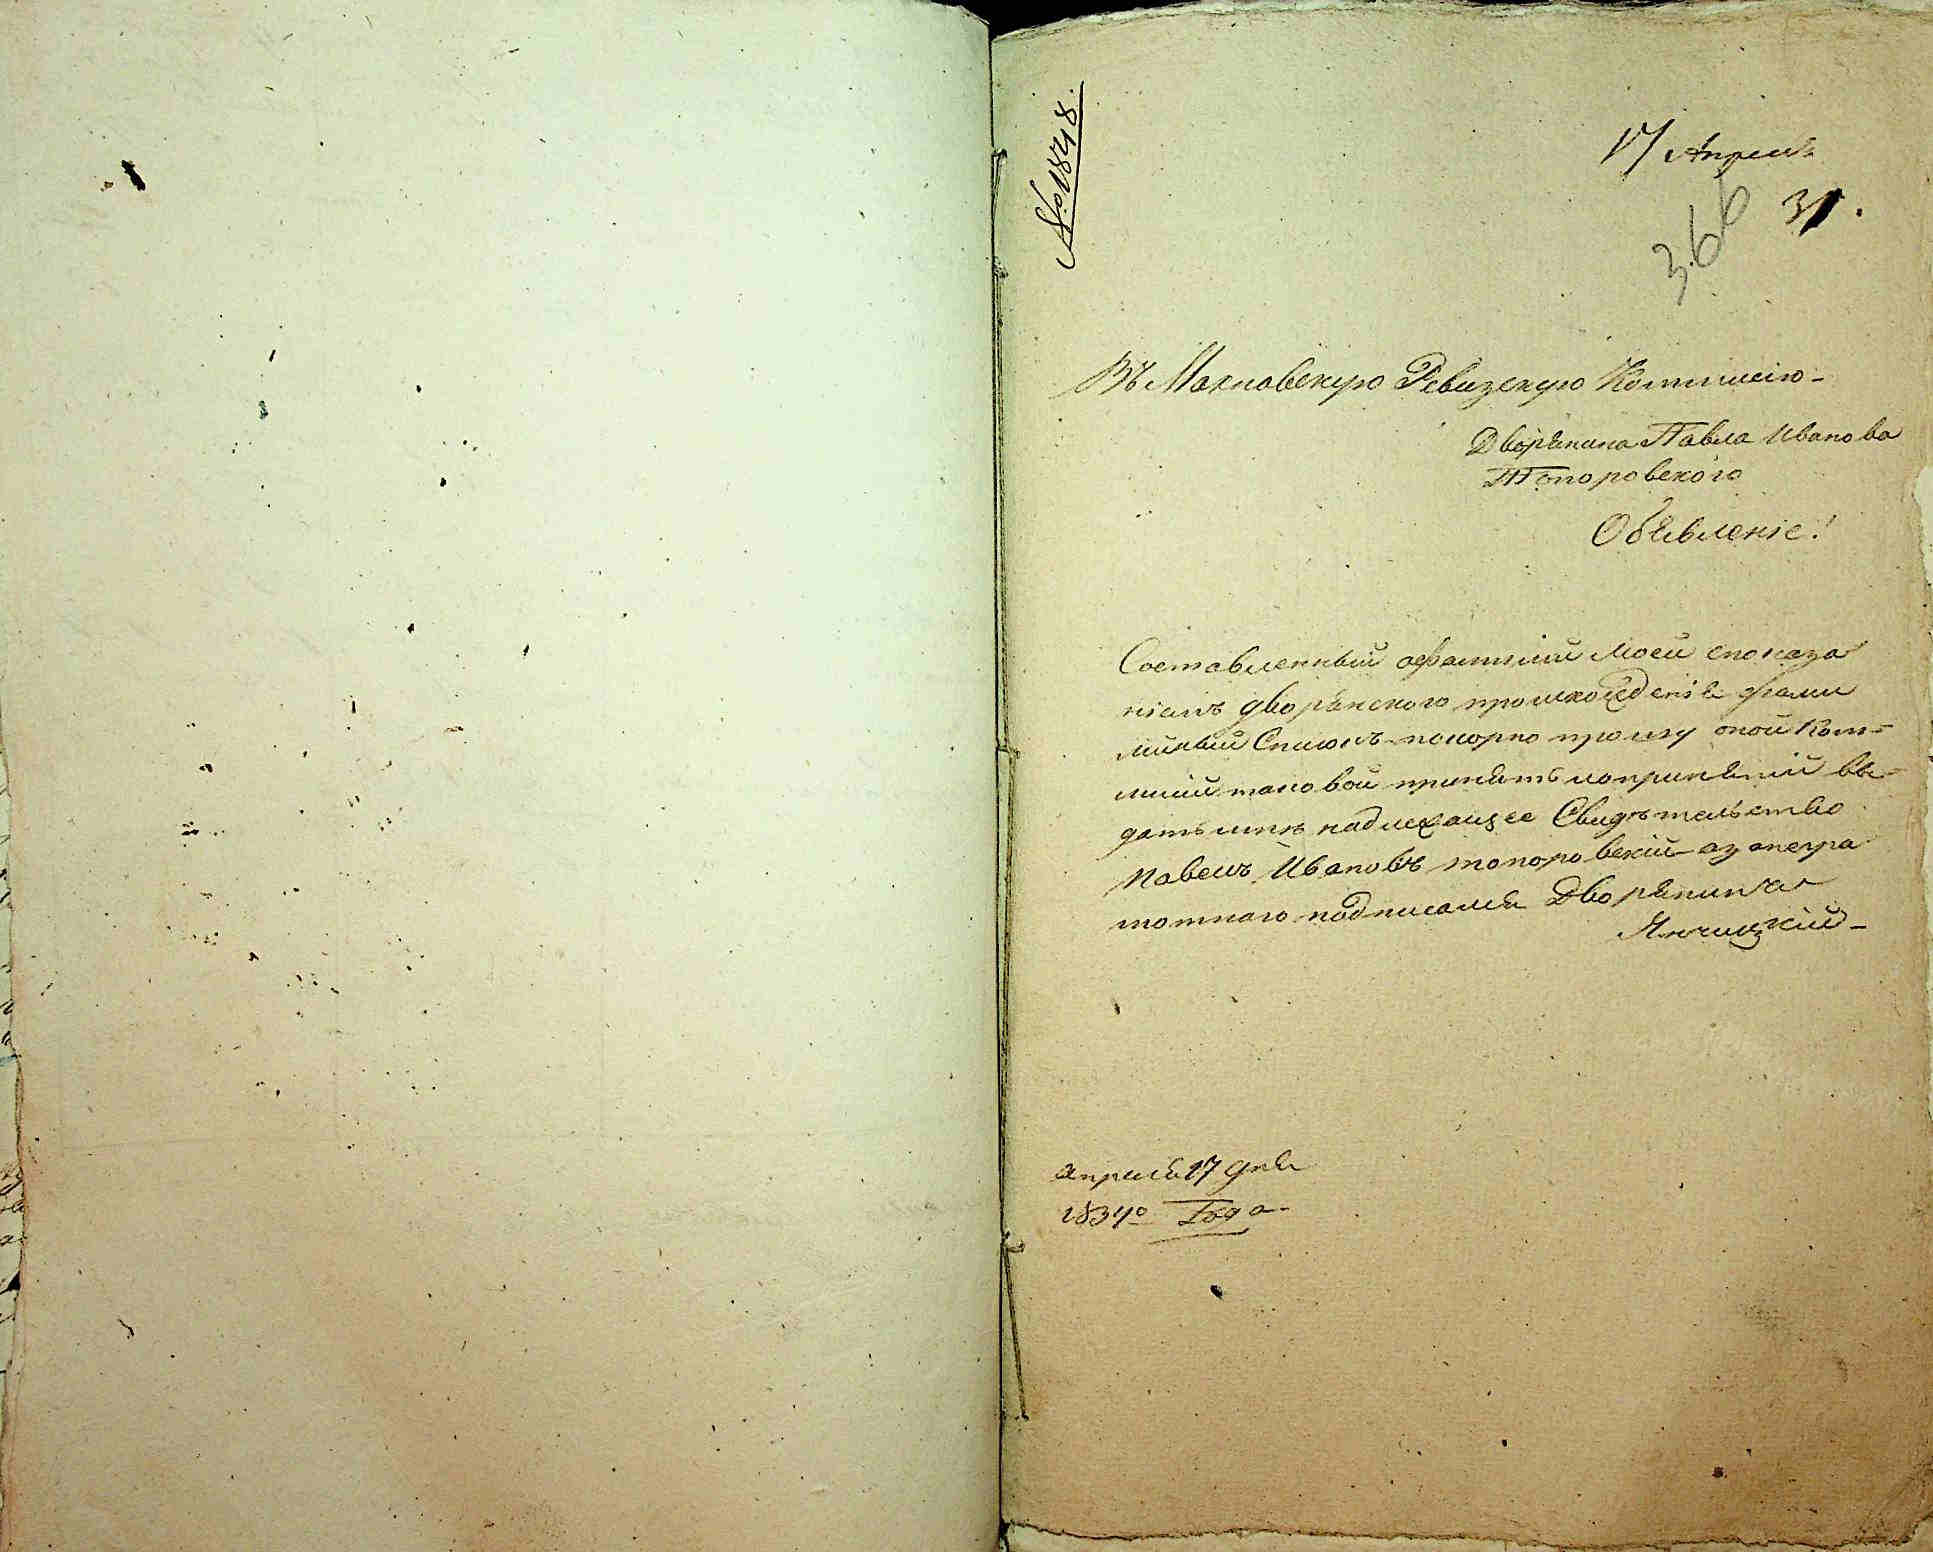 № 1848.
17 Апреля
31.
366
Въ Махновскую Ревизскую Коммисію -
Дворянина Павла Иванова
Топоровского
Объявленіе!
Составленный офамиліи Моей споказа
ніемъ дворянского происхожденія фами
лійный Списокъ покорно прошу оной Ком=
мисіи таковой принять и по принятіи вы=
дать мнѣ надлежащее Свидѣтельство
Павелъ Ивановъ топоровскій а занегра
мотнаго подписался Дворянинъ
Апреля 17 дня
1834го Года